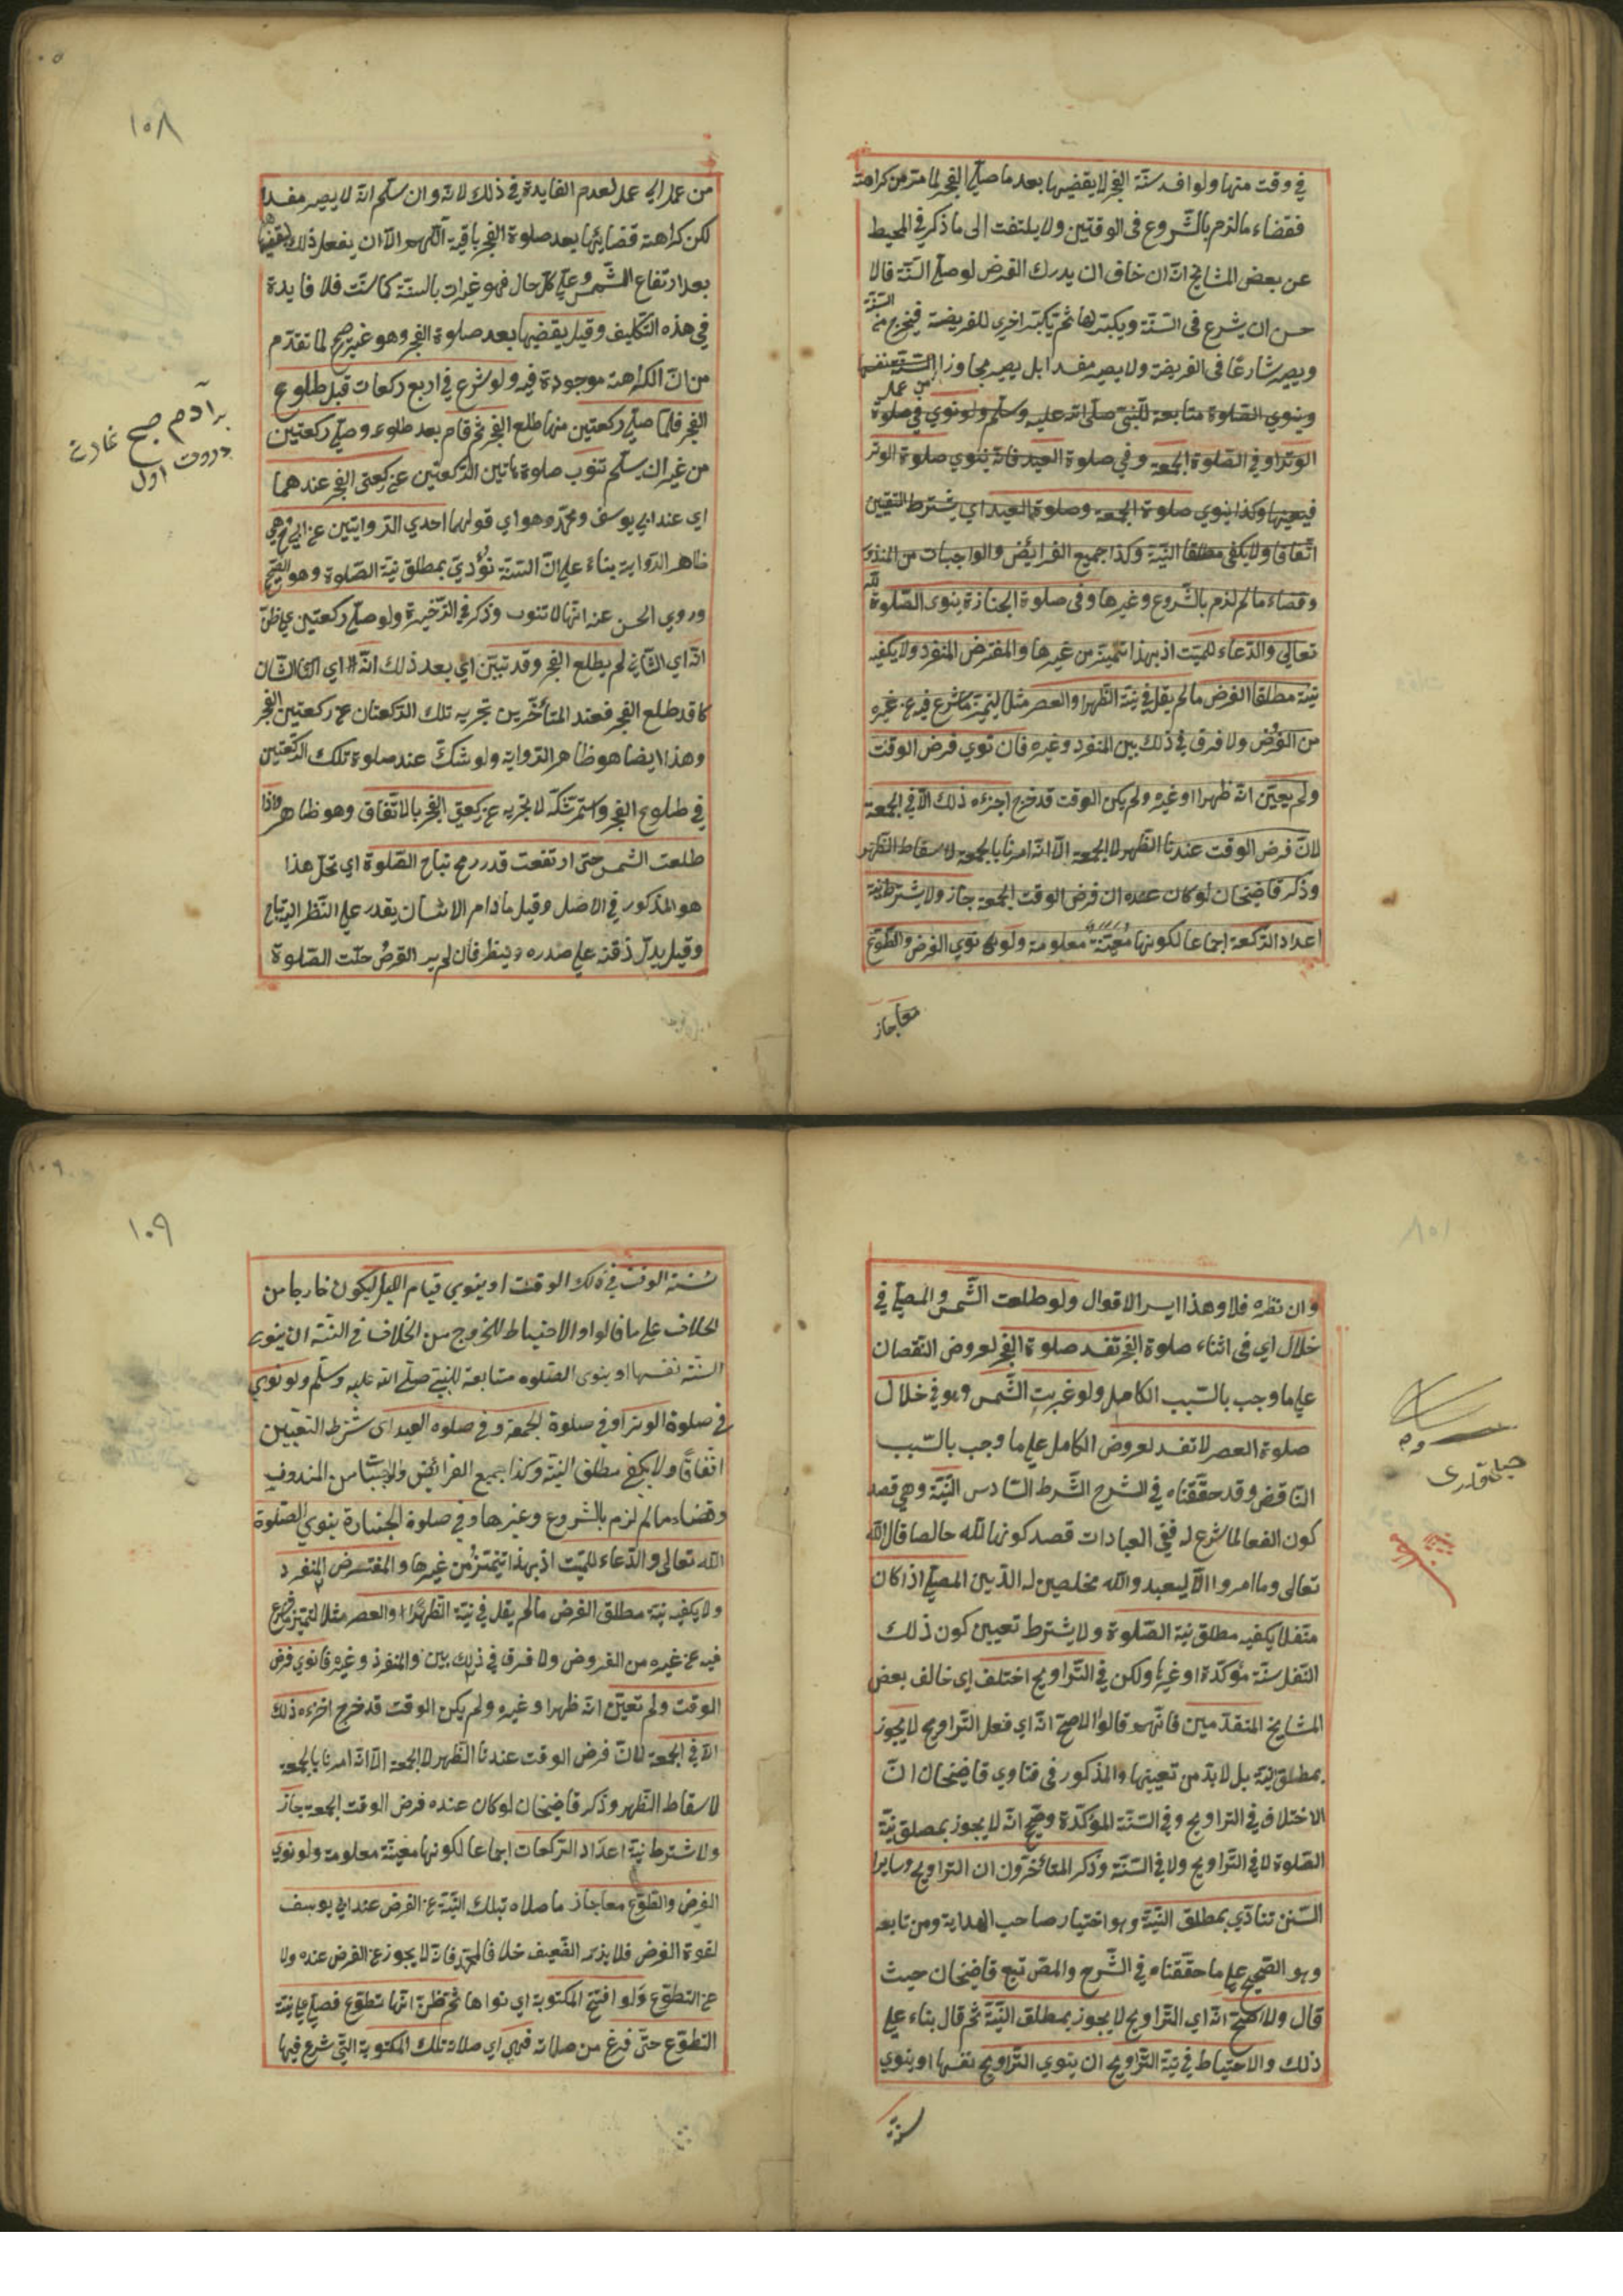 في وقت منها ولو افسد سنة الفجر لا يقضيها بعد ما صلي الفجر لما مر من كراهة
فقضاء ما لزم بالشروع فى الوقتين ولا يلتفت الى ما ذكر في المحيط
عن بعض المشايخ انه ان خاف ان يدرك الفرض لو صلي السنة قالا
حسن ان يشرع فى السنة ويكبر لها ثم يكبر اخري للفريضة فيخرج من السنة
ويصير شارعا فى الفريضة ولا يصير مفسدا بل يصير مجاوزا من عمل
السنة نفسها
وينوي الصلوة متابعة للنبى صلى الله عليه وسلم ولو نوي في صلوة
الوتر او في الصلوة الجمعة وفي صلوة العيد فانه ينوي صلوة الوتر
فيعينها وكذا ينوي صلوة الجمعة وصلوة العيد اي يشترط التعيين
اتفاقا ولا يكفى مطلقا النية وكذا جميع الفرائض والواجبات من المنذور
وقضاء ما لم لزم بالشروع وغيرها وفى صلوة الجنازة ينوى الصلوة لله
تعالى والدعاء للميت اذ بهذا تتميز من غيرها والمفترض المنفرد ولا يكفيه
نية مطلقا الفرض ما لم يقل في نية الظهر او العصر مثلا ليتميز ما شرع فيه عن غيره
من الفرض ولا فرق في ذلك بين المنفرد وغيره فان نوي فرض الوقت
ولم يعين انه ظهرا او غيره ولم يكن الوقت قد خرج اجزءه ذلك الا في الجمعة
لان فرض الوقت عندنا الظهر لا الجمعة الا انه امرنا بالجمعة لاسقاط الظهر
وذكر قاضيخان لو كان عنده ان فرض الوقت الجمعة جاز ولا يشترط نية
اعداد الركعة اجماعا لكونها معينة معلومة ولو نوي الفرض والتطوع
معا جاز
١٠٨
من عمل الى عمل لعدم الفايدة في ذلك لانه وان سلم انه لا يصير مفسدا
لكن كراهة قضايئها بعد صلوة الفجر باقية اللهم الا ان يفعل ذلك ليقضيها
بعد ارتفاع الشمس وعلي كل حال فهو غير ات بالسنة كما سنت فلا فايدة
في هذه التكليف وقيل يقضيها بعد صلوة الفجر وهو غير صح لما تقدم
من ان الكراهة موجودة فيه ولو شرع في اربع ركعات قبل طلوع
الفجر فلما صلي ركعتين منها طلع الفجر ثم قام بعد طلوعه وصلي ركعتين
من غير ان يسلم تنوب صلوة هاتين الركعتين عن ركعتى الفجر عندهما
اي عند ابي يوسف ومحمد وهو اي قولهما احدي الروايتين عن ابي ح وهي
ظاهر الرواية بناء على ان السنة تؤدي بمطلق نية الصلوة وهو الصحيح
وروي الحسن عنه انها لا تنوب وذكر في الذخيرة ولو صلي ركعتين علي ظن
انه اي الثاني لم يطلع الفجر وقد تبين اي بعد ذلك انه اي الشان
كا قد طلع الفجر فعند المتأخرين تجزيه تلك الركعتان عن ركعتين الفجر
وهذا ايضا هو ظاهر الرواية ولو شك عند صلوة تلك الركعتين
في طلوع الفجر واستمر شكه لا تجزيه عن ركعتي الفجر بالاتفاق وهو ظاهر واذا
طلعت الشمس حتى ارتفعت قدر رمح تباح الصلوة اي تحل هذا
هو المذكور في الاصل وقيل ما دام الانسان يقدر علي النظر اليه لا تباح
وقيل يدل ذقنه على صدره وينظر فان لم ير القرض حلت الصلوة
بر آدم صبح نمازن
اول
وان نظره فلا وهذا ايسر الاقوال ولو طلعت الشمس والمصلي في
خلال اي فى اثناء صلوة الفجر تفسد صلوة الفجر لعروض النقصان
علي ما وجب بالسبب الكامل ولو غربت الشمس وهو في خلال
صلوة العصر لا تفسد لعروض الكامل علي ما وجب بالسبب
الناقض وقد حققناه في الشرح الشرط السادس النية وهي قصد
كون الفعل لما شرع له ففي العبادات قصد كونها لله خالصا قال الله
تعالى وما امروا الا ليعبدوا الله مخلصين له الدين المصلي اذا كان
متنفلا يكفيه مطلق نية الصلوة ولا يشترط تعيين كون ذلك
النفل سنة مؤكدة او غيرها ولكن في التراويح اختلف اى خالف بعض
المشايخ المتقدمين فانهم قالوا الاصح انه اي فعل التراويح لا يجوز
بمطلق النية بل لا بد من تعيينها والمذكور فى فتاوي قاضيخان ان
الاختلاف في التراويح وفي السنة المؤكدة وصحح انه لا يجوز بمصلق نية
الصلوة لا في التراويح ولا في السنة وذكر المتأخرون ان التراويح وسايرا
السنن تتادي بمطلق النية وهو اختيار صاحب الهداية ومن تابعه
وهو الصحيح على ما حققناه في الشرح والمص تبع قاضيخان حيث
قال والاصح انه اي التراويح لا يجوز بمطلق النية ثم قال بناء علي
ذلك والاحتياط في نية التراويح ان ينوي التراويح نفسها او ينوي
سنة
١٠٩
سنة الوقت في ذلك الوقت او ينوي قيام الليل ليكون خارجا من
الخلاف علي ما قالوا والاحتياط للخروج من الخلاف في السنة ان ينوي
السنة نفسها او ينوى الصلوة متابعة للنبي صلي الله عليه وسلم ولو نوي
في صلوة الوتر او في صلوة الجمعة وفي صلوة العيد اى شترط التعيين
اتفاقا ولا يكفي مطلق النية وكذا جميع الفرائض والواجبات من المندوف
وقضاء ما لم لزم بالشروع وغيرها وفي صلوة الجنازة ينوي الصلوة
الله تعالى والدعاء للميت اذ بهذا تتميز من غيرها والمفترض المنفرد
ولا يكفيه نية مطلق الفرض ما لم يقل في نية الظهر او العصر مثلا لتميز ما شرع
فيه عن غيره من الفروض ولا فرق في ذلك بين والمنفرد وغيره فانوي فرض
الوقت ولم تعين انه ظهرا وغيره ولم يكن الوقت قد خرج اجزءه ذلك
الا في الجمعة لان فرض الوقت عندنا الظهر لا الجمعة الا انه امرنا بالجمعة
لاسقاط الظهر وذكر قاضيخان لو كان عنده فرض الوقت الجمعة جاز
ولا شترط نية اعداد الركعات اجماعا لكونها معينة معلومة ولو نوي
الفرض والتطوع معا جاز ما صلاه بتلك النية عن الفرض عند ابي يوسف
لقوة الفرض فلا يزاد الضعيف خلافا لمحمد فانه لا يجوز عن الفرض عنده ولا
عن التطوع ولو افتتح المكتوبة اي نواها ثم ظن انها تطوع فصلي علي نية
التطوع حتى فرغ من صلاته فهي اي صلاته تلك المكتوبة التي شرع فيها